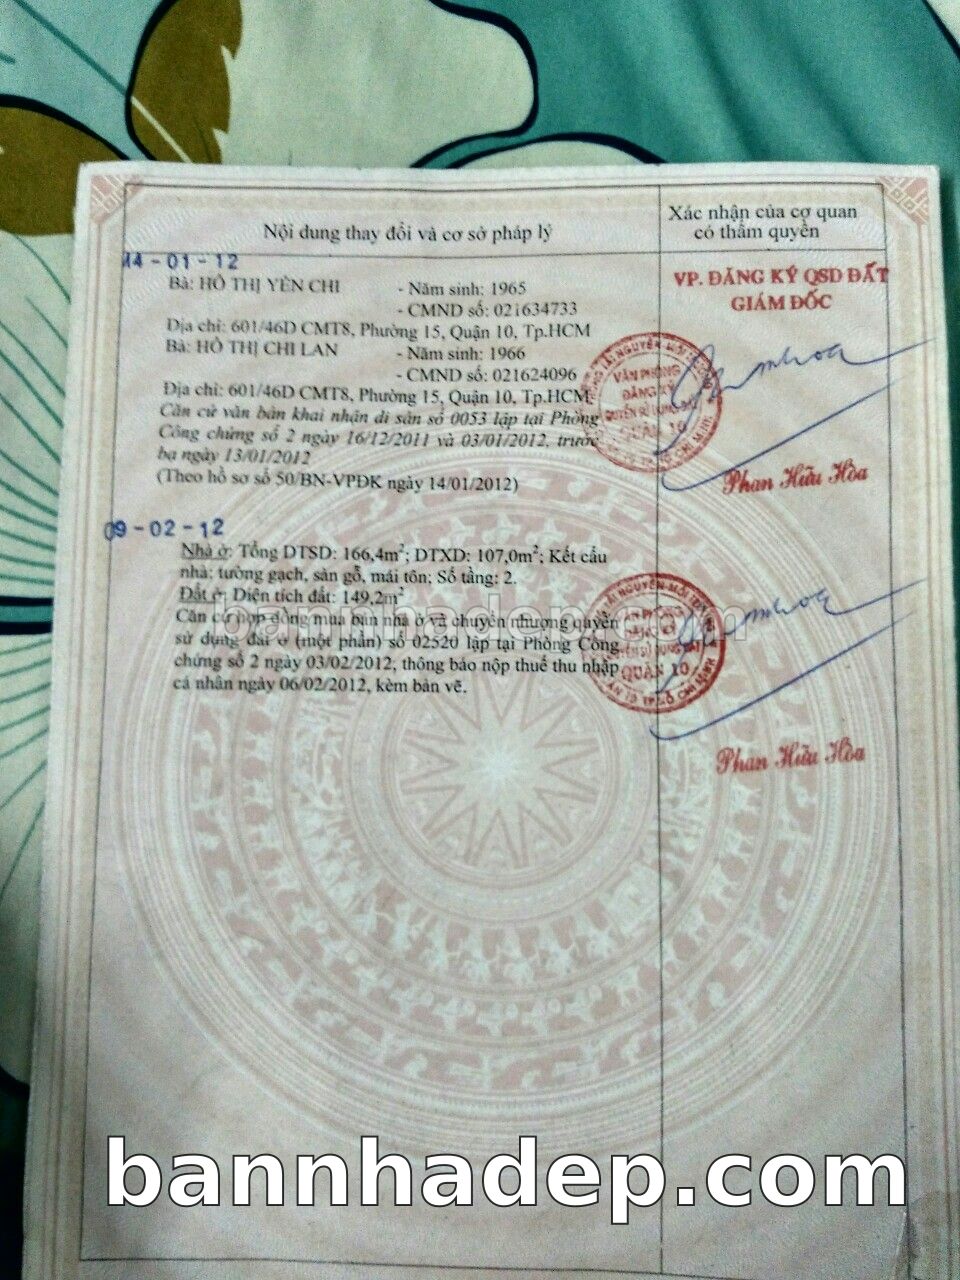 Nội dung thay đổi và cơ sở pháp lý
Xác nhận của cơ quan
có thẩm quyền
14-01-12
Bà: HỒ THỊ YẾN CHI - Năm sinh: 1965
- CMND số: 021634733
Địa chỉ: 601/46D CMT8, Phường 15, Quận 10, Tp.HCM
Bà: HỒ THỊ CHI LAN - Năm sinh: 1966
- CMND số: 021624096
Địa chỉ: 601/46D CMT8, Phường 15, Quận 10, Tp.HCM
Căn cứ văn bản khai nhận di sản số 0053 lập tại Phòng
Công chứng số 2 ngày 16/12/2011 và 03/01/2012, trước
bạ ngày 13/01/2012
(Theo hồ sơ số 50/BN-VPĐK ngày 14/01/2012)
VP. ĐĂNG KÝ QSD ĐẤT
GIÁM ĐỐC
VĂN PHÒNG
ĐĂNG KÝ
QUYỀN SỬ DỤNG ĐẤT
QUẬN 10
Phan Hữu Hòa
09-02-12
Nhà ở: Tổng DTSD: 166,4m²; DTXD: 107,0m²; Kết cấu
nhà: tường gạch, sàn gỗ, mái tôn; Số tầng: 2.
Đất ở: Diện tích đất: 149,2m²
Căn cứ hợp đồng mua bán nhà ở và chuyển nhượng quyền
sử dụng đất ở (một phần) số 02520 lập tại Phòng Công
chứng số 2 ngày 03/02/2012, thông báo nộp thuế thu nhập
cá nhân ngày 06/02/2012, kèm bản vẽ.
bannhadep.com
VĂN PHÒNG
ĐĂNG KÝ
QUYỀN SỬ DỤNG ĐẤT
QUẬN 10
Phan Hữu Hòa
bannhadep.com